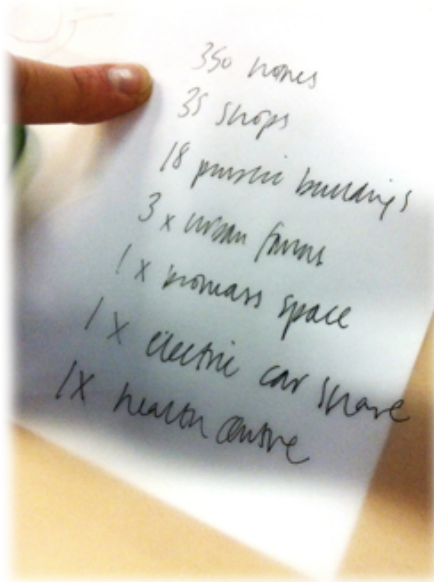 350 homes
35 shops
18 public buildings
3 x urban farms
1 x biomass space
1 x electric car share
1x health centre